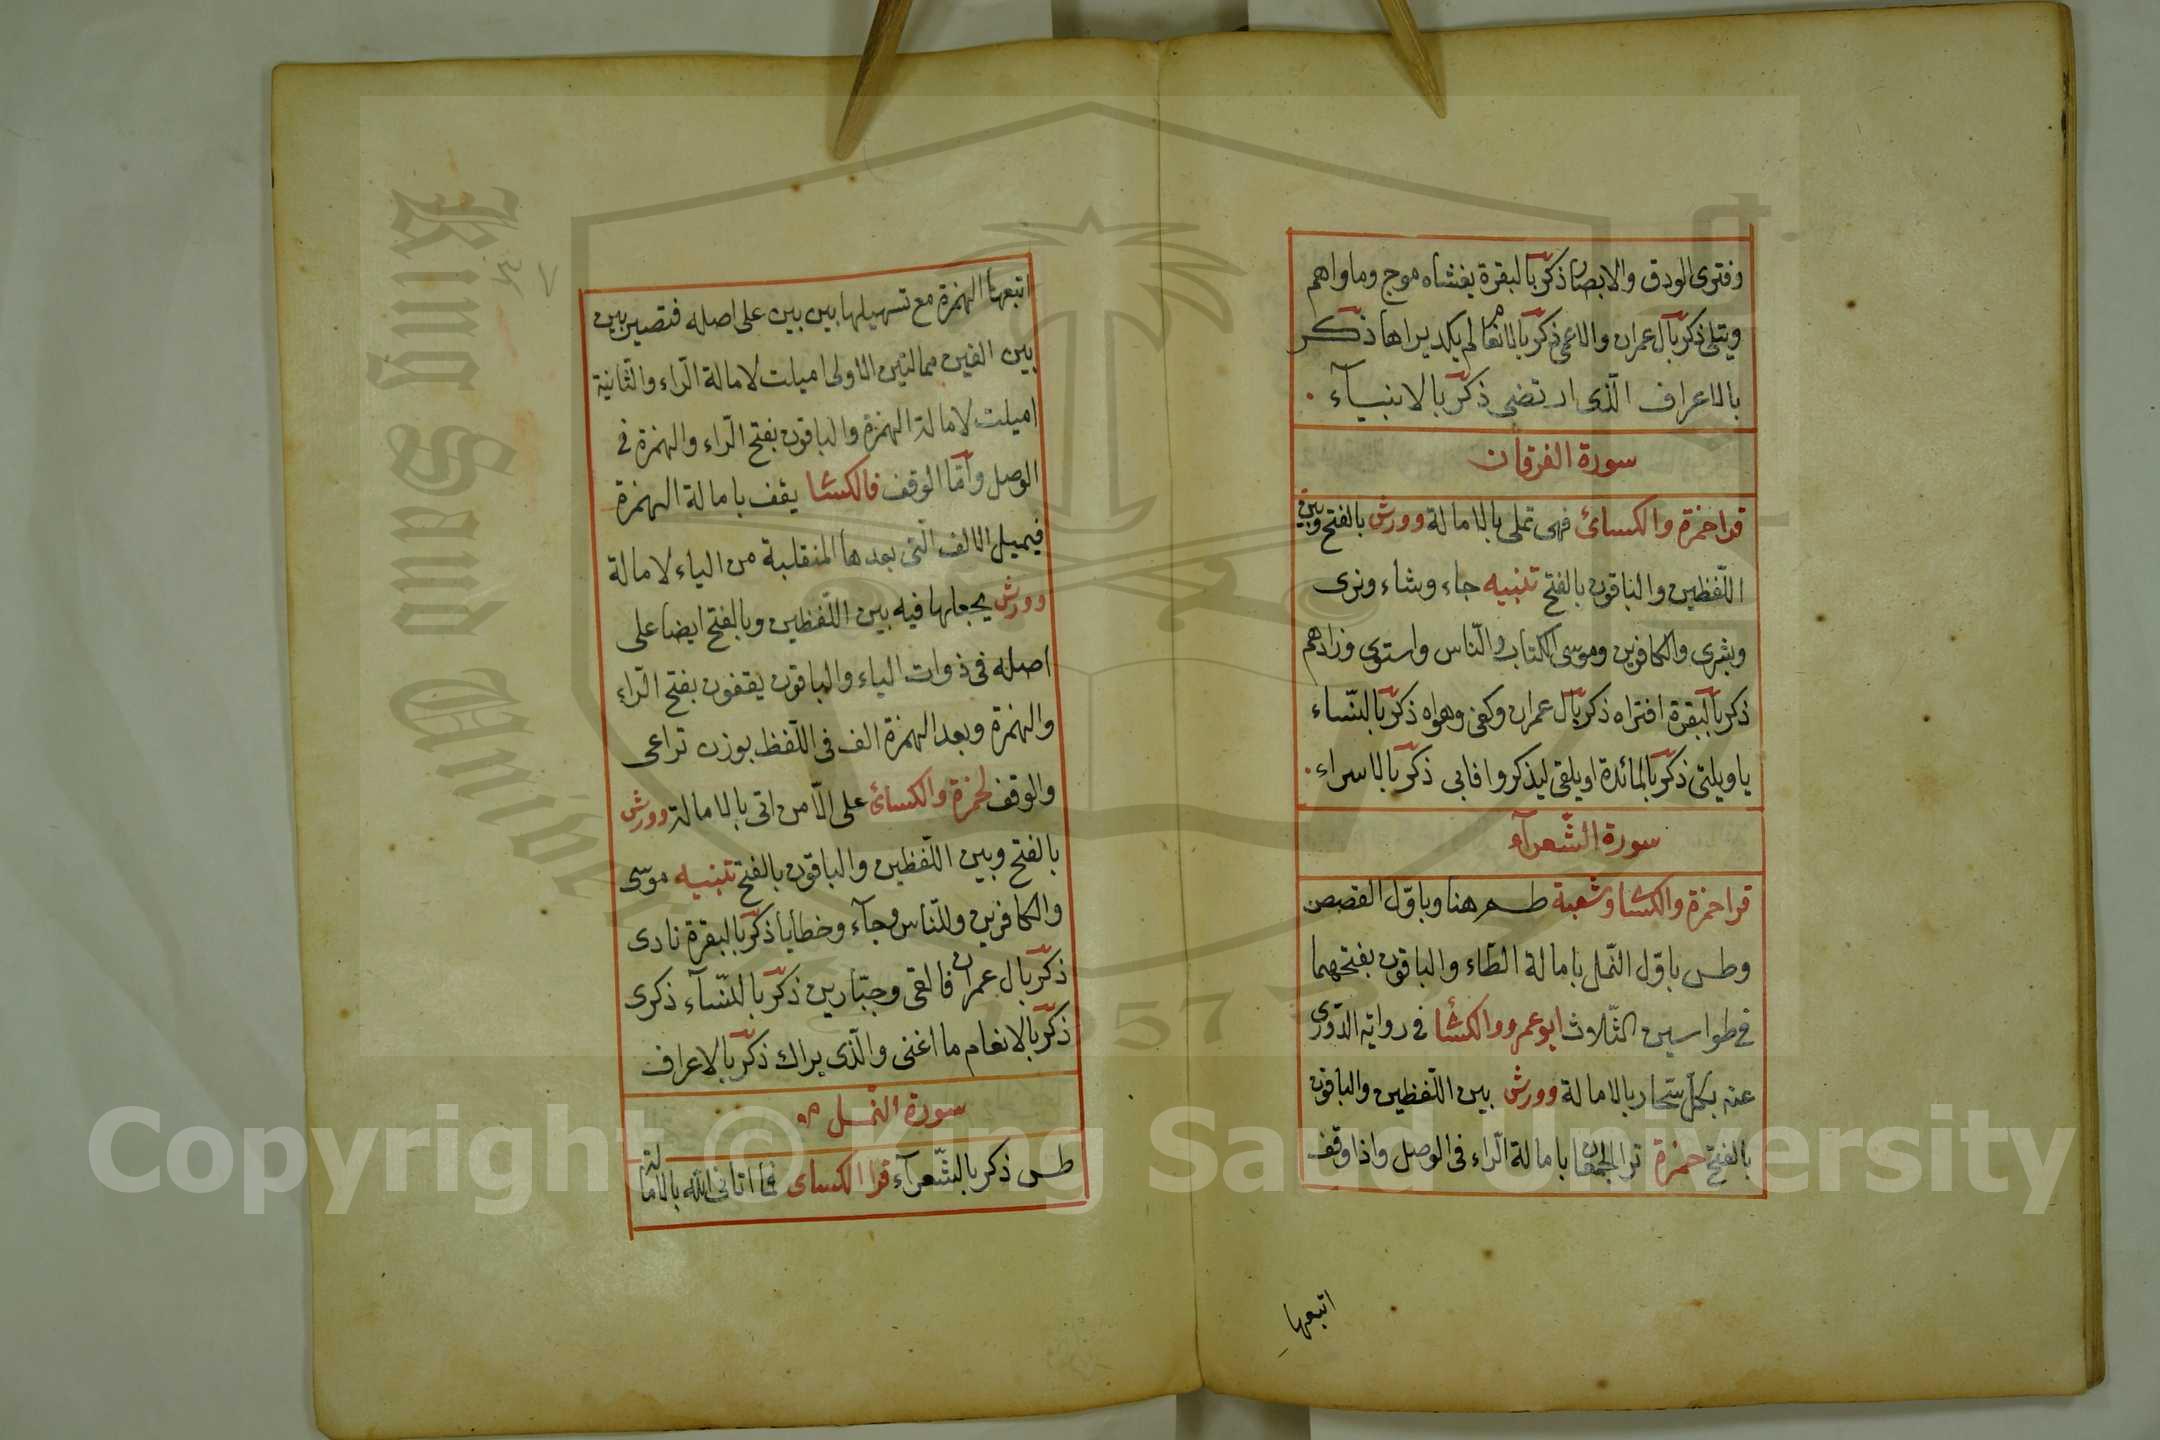 وفترى الودق والابصار ذكر بالبقرة يغشاه موج وماواهم
ويتلى ذكر بآل عمران والاعمى ذكر بالانعام لم يكد يراها ذكر
بالاعراف الّذى ارتضى ذكر بالانبيآء
سورة الفرقان
قرا حمزة والكسائ فهى تملى بالامالة وورش بالفتح وبين
اللّفظين والباقون بالفتح تنبيه جاء وشاء ونرى
وبشرى والكافرين وموسى الكتاب والنّاس واستوى وزادهم
ذكر بالبقرة افتراه ذكر بآل عمران وكفى وهواه ذكر بالنّساء
ياويلتى ذكر بالمائدة او يلقى ليذكروا فابى ذكر بالاسراء
سورة الشّعرآء
قرا حمزة والكسا وشعبة طسم هنا وباوّل القصص
وطس باوّل النّمل بامالة الطّاء والباقون بفتحهما
فى طواسين الثّلاث ابو عمرو والكسا فى رواية الدّورى
عنه بكلّ سحّار بالامالة وورش بين اللّفظين والباقون
بالفتح حمزة ترا الجمعان بامالة الرّاء فى الوصل واذا وقف
اتبعها
اتبعها الهمزة مع تسهيلها بين بين على اصله فتصير بين
بين الفين ممالتين الاولى اميلت لامالة الرّاء والثّانية
اميلت لامالة الهمزة والباقون بفتح الرّاء والهمزة فى
الوصل وامّا الوقف فالكسا يقف بامالة الهمزة
فيميل الالف الّتى بعدها المنقلبة من الياء لامالة
وورش يجعلها فيه بين اللّفظين وبالفتح ايضا على
اصله فى ذوات الياء والباقون يقفون بفتح الرّاء
والهمزة وبعد الهمزة الف فى اللّفظ بوزن تراعى
والوقف لحمزة والكسائ على الّا من اتى بالامالة وورش
بالفتح وبين اللّفظين والباقون بالفتح تنبيه موسى
والكافرين وللنّاس وجآء وخطايا ذكر بالبقرة نادى
ذكر بال عمران فالقى وجبّارين ذكر بالنّسآء ذكرى
ذكر بالانعام ما اغنى والّذى يراك ذكر بالاعراف
سورة النّمل
طس ذكر بالشّعرآء قرا الكساى فما اتانى الله بالامالة
٧
King Saud University
1957
Copyright © King Saud University